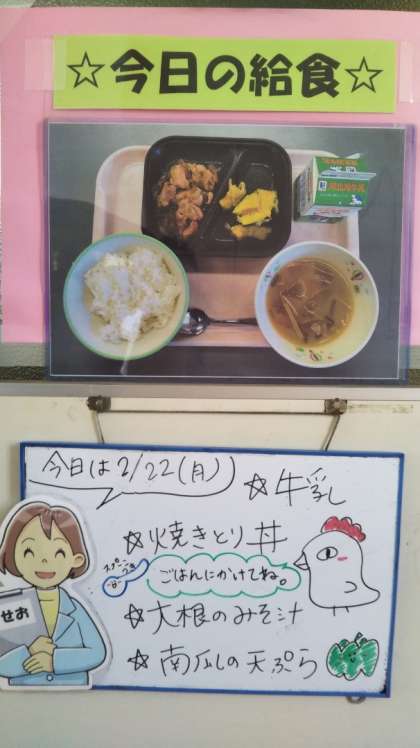 ☆今日の給食☆
今日は2/22(月)
☆牛乳
☆焼きとり丼
スプーン
ごはんにかけてね。
☆大根のみそ汁
☆南瓜の天ぷら
せお